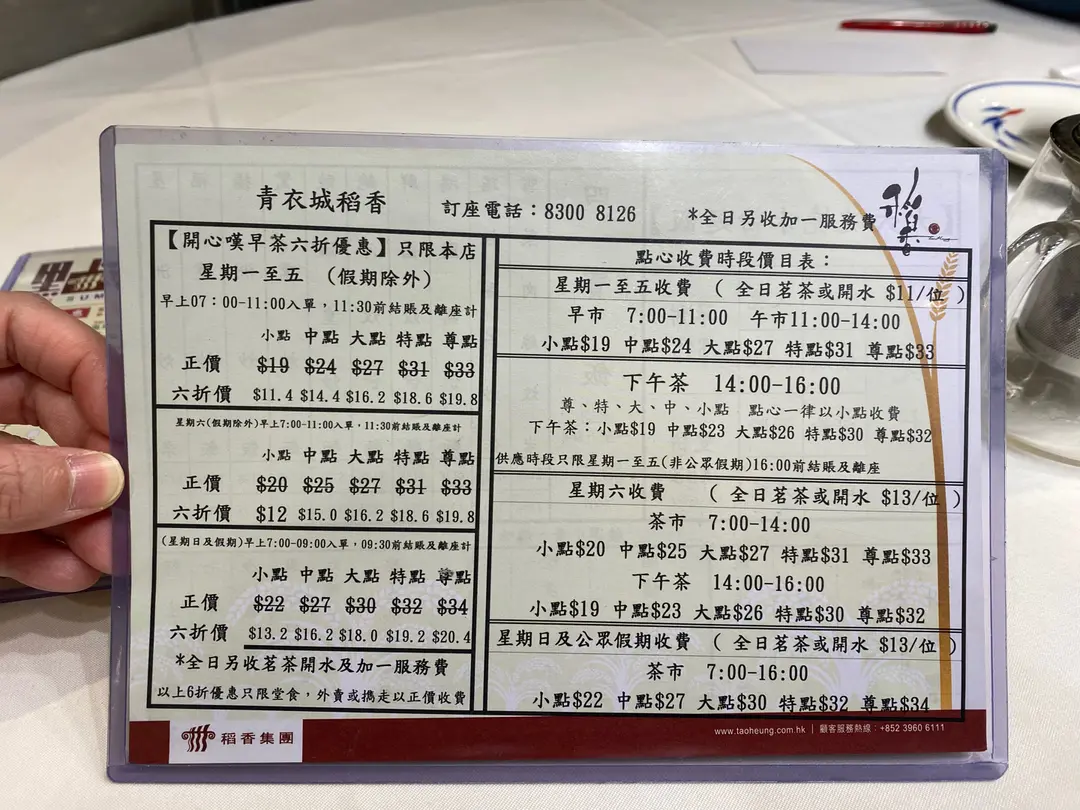 青衣城稻香
訂座電話：8300 8126
*全日另收加一服務費
稻香
【開心嘆早茶六折優惠】只限本店
星期一至五 (假期除外)
早上07：00-11:00入單，11:30前結賬及離座計
小點 中點 大點 特點 尊點
正價 $19 $24 $27 $31 $33
六折價 $11.4 $14.4 $16.2 $18.6 $19.8
星期六(假期除外)早上7:00-11:00入單，11:30前結賬及離座計
小點 中點 大點 特點 尊點
正價 $20 $25 $27 $31 $33
六折價 $12 $15.0 $16.2 $18.6 $19.8
(星期日及假期)早上7:00-09:00入單，09:30前結賬及離座計
小點 中點 大點 特點 尊點
正價 $22 $27 $30 $32 $34
六折價 $13.2 $16.2 $18.0 $19.2 $20.4
*全日另收茗茶開水及加一服務費
以上6折優惠只限堂食，外賣或攜走以正價收費
點心收費時段價目表：
星期一至五收費 ( 全日茗茶或開水 $11/位 )
早市 7:00-11:00 午市11:00-14:00
小點$19 中點$24 大點$27 特點$31 尊點$33
下午茶 14:00-16:00
尊、特、大、中、小點 點心一律以小點收費
下午茶：小點$19 中點$23 大點$26 特點$30 尊點$32
供應時段只限星期一至五(非公眾假期)16:00前結賬及離座
星期六收費 ( 全日茗茶或開水 $13/位 )
茶市 7:00-14:00
小點$20 中點$25 大點$27 特點$31 尊點$33
下午茶 14:00-16:00
小點$19 中點$23 大點$26 特點$30 尊點$32
星期日及公眾假期收費 ( 全日茗茶或開水 $13/位 )
茶市 7:00-16:00
小點$22 中點$27 大點$30 特點$32 尊點$34
稻香集團
www.taoheung.com.hk | 顧客服務熱線：+852 3960 6111